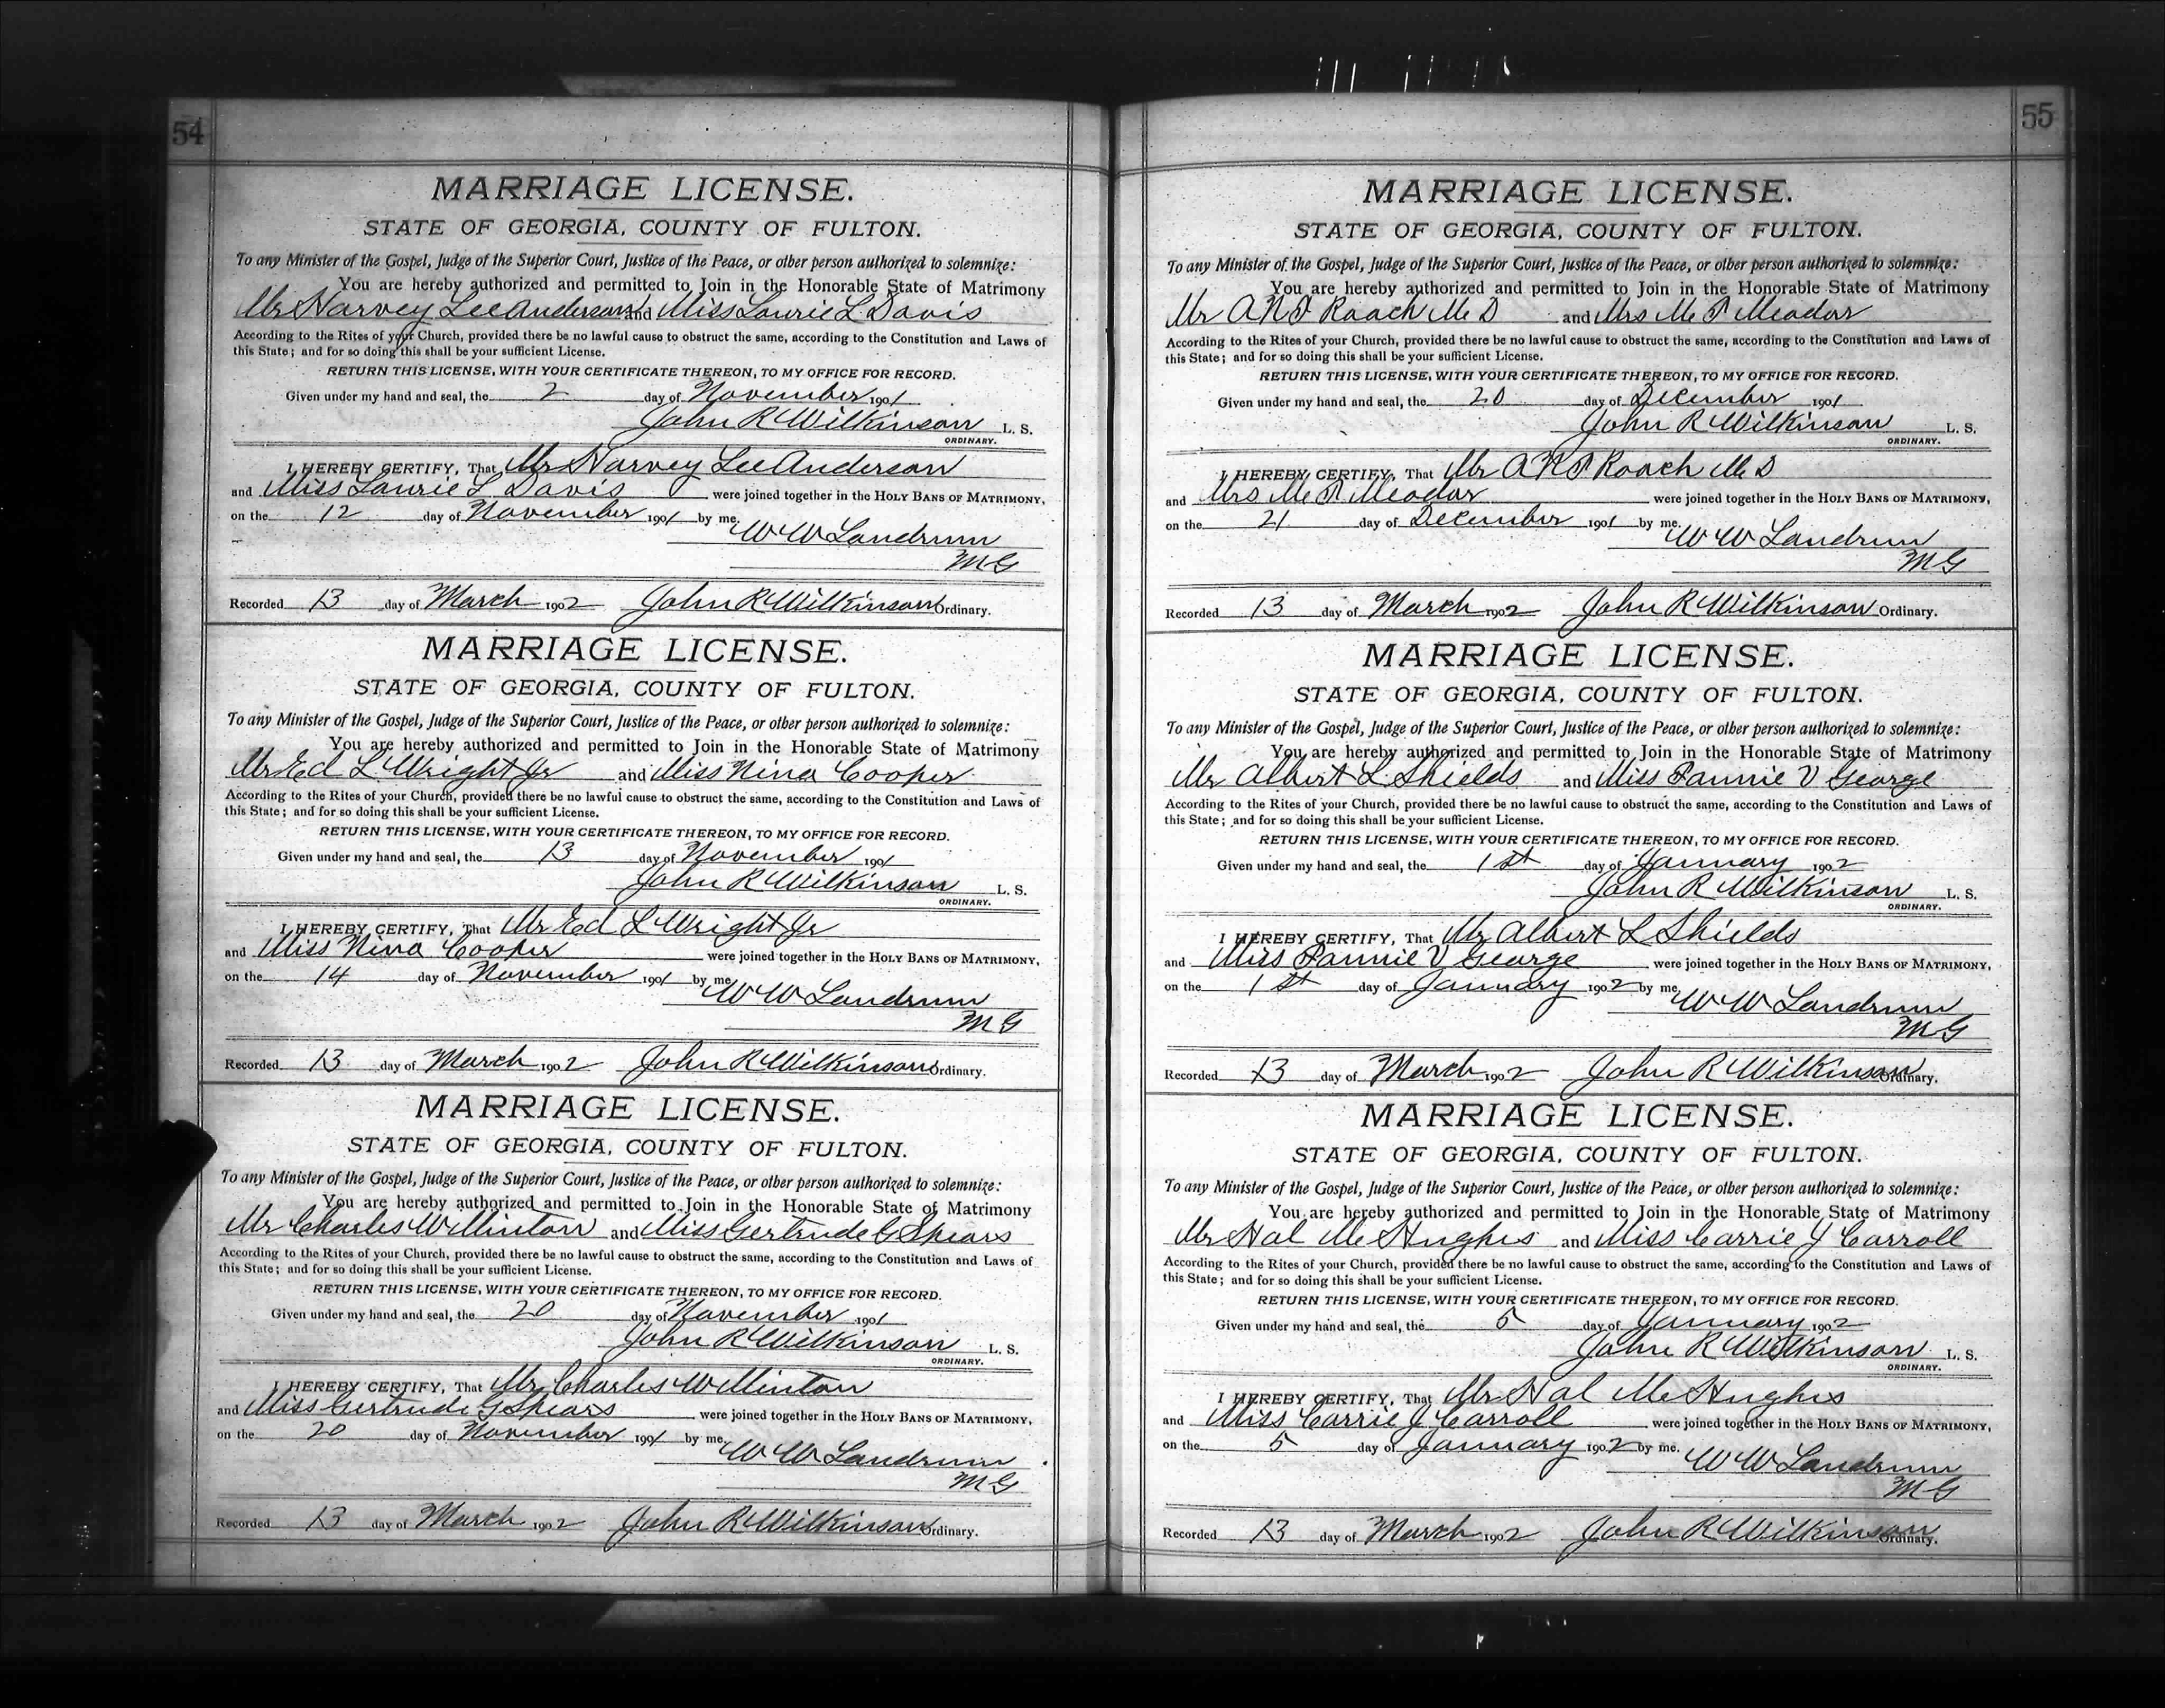 54
MARRIAGE LICENSE.
STATE OF GEORGIA, COUNTY OF FULTON.
To any Minister of the Gospel, Judge of the Superior Court, Justice of the Peace, or other person authorized to solemnize:
You are hereby authorized and permitted to Join in the Honorable State of Matrimony
Mr Harvey Lee Anderson and Miss Laurie L Davis
According to the Rites of your Church, provided there be no lawful cause to obstruct the same, according to the Constitution and Laws of
this State; and for so doing this shall be your sufficient License.
RETURN THIS LICENSE, WITH YOUR CERTIFICATE THEREON, TO MY OFFICE FOR RECORD.
Given under my hand and seal, the 2 day of November 1901
John R Wilkinson L. S.
ORDINARY.
I HEREBY CERTIFY, That Mr Harvey Lee Anderson
and Miss Laurie L Davis were joined together in the HOLY BANS OF MATRIMONY,
on the 12 day of November 1901 by me.
W W Landrum
M G
Recorded 13 day of March 1902 John R Wilkinson Ordinary.
MARRIAGE LICENSE.
STATE OF GEORGIA, COUNTY OF FULTON.
To any Minister of the Gospel, Judge of the Superior Court, Justice of the Peace, or other person authorized to solemnize:
You are hereby authorized and permitted to Join in the Honorable State of Matrimony
Mr Ed L Wright Jr and Miss Nina Cooper
According to the Rites of your Church, provided there be no lawful cause to obstruct the same, according to the Constitution and Laws of
this State; and for so doing this shall be your sufficient License.
RETURN THIS LICENSE, WITH YOUR CERTIFICATE THEREON, TO MY OFFICE FOR RECORD.
Given under my hand and seal, the 13 day of November 1901
John R Wilkinson L. S.
ORDINARY.
I HEREBY CERTIFY, That Mr Ed L Wright Jr
and Miss Nina Cooper were joined together in the HOLY BANS OF MATRIMONY,
on the 14 day of November 1901 by me.
W W Landrum
M G
Recorded 13 day of March 1902 John R Wilkinson Ordinary.
MARRIAGE LICENSE.
STATE OF GEORGIA, COUNTY OF FULTON.
To any Minister of the Gospel, Judge of the Superior Court, Justice of the Peace, or other person authorized to solemnize:
You are hereby authorized and permitted to Join in the Honorable State of Matrimony
Mr Charles W Minton and Miss Gertrude G Spears
According to the Rites of your Church, provided there be no lawful cause to obstruct the same, according to the Constitution and Laws of
this State; and for so doing this shall be your sufficient License.
RETURN THIS LICENSE, WITH YOUR CERTIFICATE THEREON, TO MY OFFICE FOR RECORD.
Given under my hand and seal, the 20 day of November 1901
John R Wilkinson L. S.
ORDINARY.
I HEREBY CERTIFY, That Mr Charles W Minton
and Miss Gertrude G Spears were joined together in the HOLY BANS OF MATRIMONY,
on the 20 day of November 1901 by me.
W W Landrum
M G
Recorded 13 day of March 1902 John R Wilkinson Ordinary.
55
MARRIAGE LICENSE.
STATE OF GEORGIA, COUNTY OF FULTON.
To any Minister of the Gospel, Judge of the Superior Court, Justice of the Peace, or other person authorized to solemnize:
You are hereby authorized and permitted to Join in the Honorable State of Matrimony
Mr Roach M D and Mrs M Meador
According to the Rites of your Church, provided there be no lawful cause to obstruct the same, according to the Constitution and Laws of
this State; and for so doing this shall be your sufficient License.
RETURN THIS LICENSE, WITH YOUR CERTIFICATE THEREON, TO MY OFFICE FOR RECORD.
Given under my hand and seal, the 20 day of December 1901
John R Wilkinson L. S.
ORDINARY.
I HEREBY CERTIFY, That Mr Roach M D
and Mrs M Meador were joined together in the HOLY BANS OF MATRIMONY,
on the 21 day of December 1901 by me.
W W Landrum
M G
Recorded 13 day of March 1902 John R Wilkinson Ordinary.
MARRIAGE LICENSE.
STATE OF GEORGIA, COUNTY OF FULTON.
To any Minister of the Gospel, Judge of the Superior Court, Justice of the Peace, or other person authorized to solemnize:
You are hereby authorized and permitted to Join in the Honorable State of Matrimony
Mr Albert L Shields and Miss Fannie V George
According to the Rites of your Church, provided there be no lawful cause to obstruct the same, according to the Constitution and Laws of
this State; and for so doing this shall be your sufficient License.
RETURN THIS LICENSE, WITH YOUR CERTIFICATE THEREON, TO MY OFFICE FOR RECORD.
Given under my hand and seal, the 1st day of January 1902
John R Wilkinson L. S.
ORDINARY.
I HEREBY CERTIFY, That Mr Albert L Shields
and Miss Fannie V George were joined together in the HOLY BANS OF MATRIMONY,
on the 1st day of January 1902 by me.
W W Landrum
M G
Recorded 13 day of March 1902 John R Wilkinson Ordinary.
MARRIAGE LICENSE.
STATE OF GEORGIA, COUNTY OF FULTON.
To any Minister of the Gospel, Judge of the Superior Court, Justice of the Peace, or other person authorized to solemnize:
You are hereby authorized and permitted to Join in the Honorable State of Matrimony
Mr Hal Mc Hughes and Miss Carrie J Carroll
According to the Rites of your Church, provided there be no lawful cause to obstruct the same, according to the Constitution and Laws of
this State; and for so doing this shall be your sufficient License.
RETURN THIS LICENSE, WITH YOUR CERTIFICATE THEREON, TO MY OFFICE FOR RECORD.
Given under my hand and seal, the 5 day of January 1902
John R Wilkinson L. S.
ORDINARY.
I HEREBY CERTIFY, That Mr Hal Mc Hughes
and Miss Carrie J Carroll were joined together in the HOLY BANS OF MATRIMONY,
on the 5 day of January 1902 by me.
W W Landrum
M G
Recorded 13 day of March 1902 John R Wilkinson Ordinary.